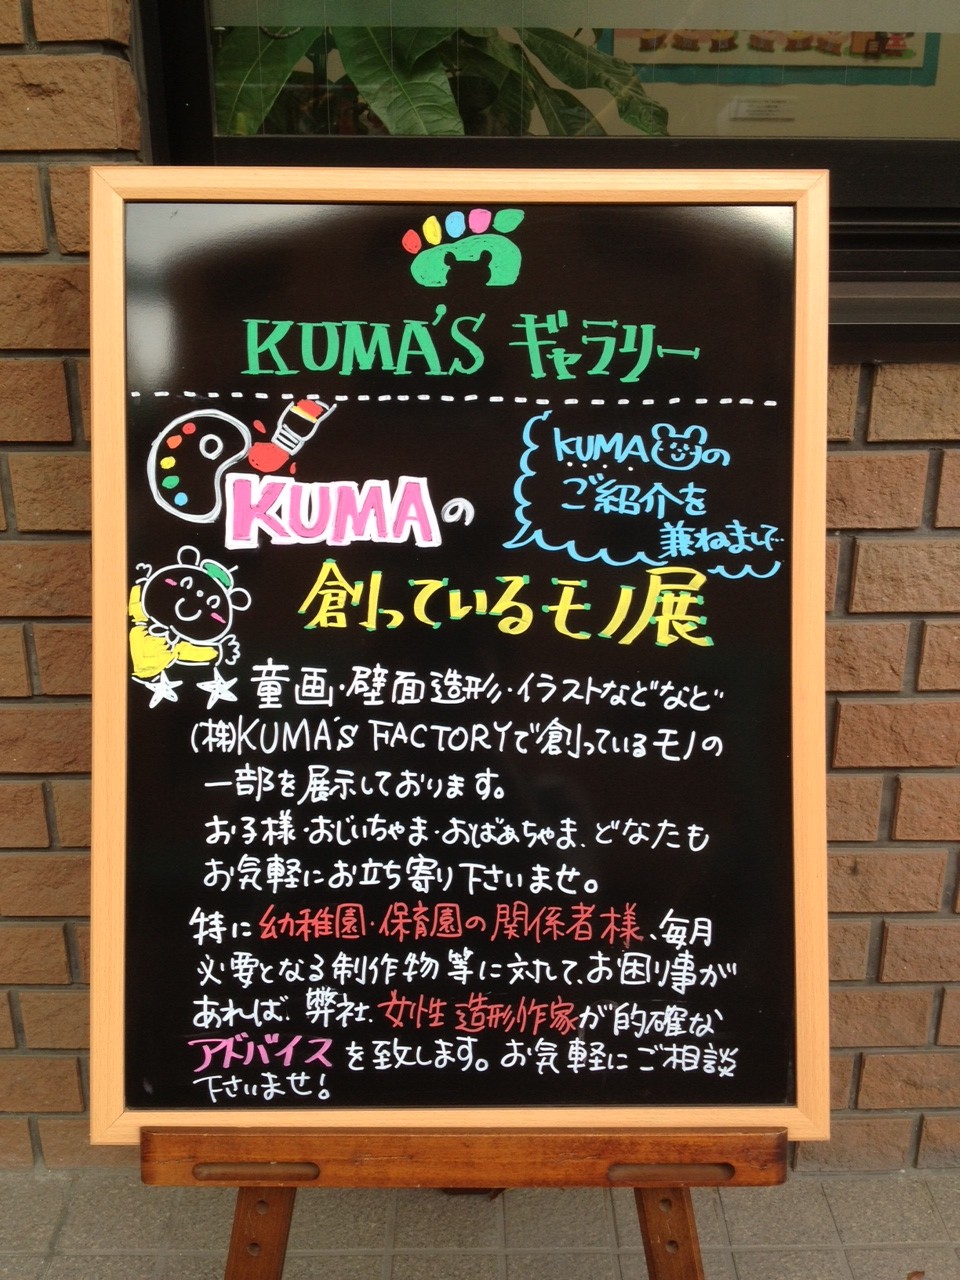 KUMA'S ギャラリー
KUMAの
KUMAの
ご紹介を
兼ねまして…
創っているモノ展
童画・壁面造形・イラストなどなど
(株)KUMA'S FACTORYで創っているモノの
一部を展示しております。
お子様・おじいちゃま・おばあちゃま、どなたも
お気軽にお立ち寄り下さいませ。
特に幼稚園・保育園の関係者様、毎月
必要となる制作物等に対して、お困り事が
あれば、弊社、女性造形作家が的確な
アドバイスを致します。お気軽にご相談
下さいませ!